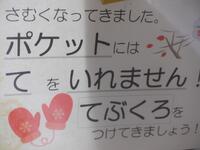 さむくなってきました。
ポケットには
て を いれません!
てぶくろを
つけてきましょう!